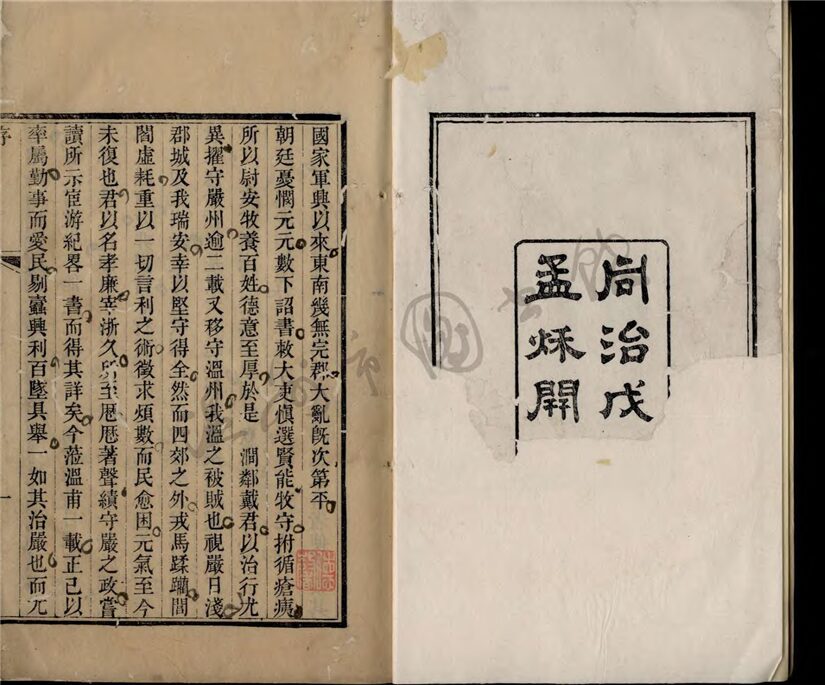 同治戊
孟秌開
國家軍興以來東南幾無完郡大亂旣次第平
朝廷憂憫元元數下詔書敕大吏愼選賢能牧守拊循瘡痍
所以尉安牧養百姓德意至厚於是 澗鄰戴君以治行尤
異擢守嚴州逾二載又移守溫州我溫之被賊也視嚴日淺
郡城及我瑞安幸以堅守得全然而四郊之外戎馬蹂躪閭
閻虛耗重以一切言利之術徵求煩數而民愈困元氣至今
未復也君以名孝廉宰浙久所至厯厯著聲績守嚴之政嘗
讀所示宦游紀畧一書而得其詳矣今蒞溫甫一載正己以
率屬勤事而愛民剔蠹興利百墜具舉一如其治嚴也而兀
序
一